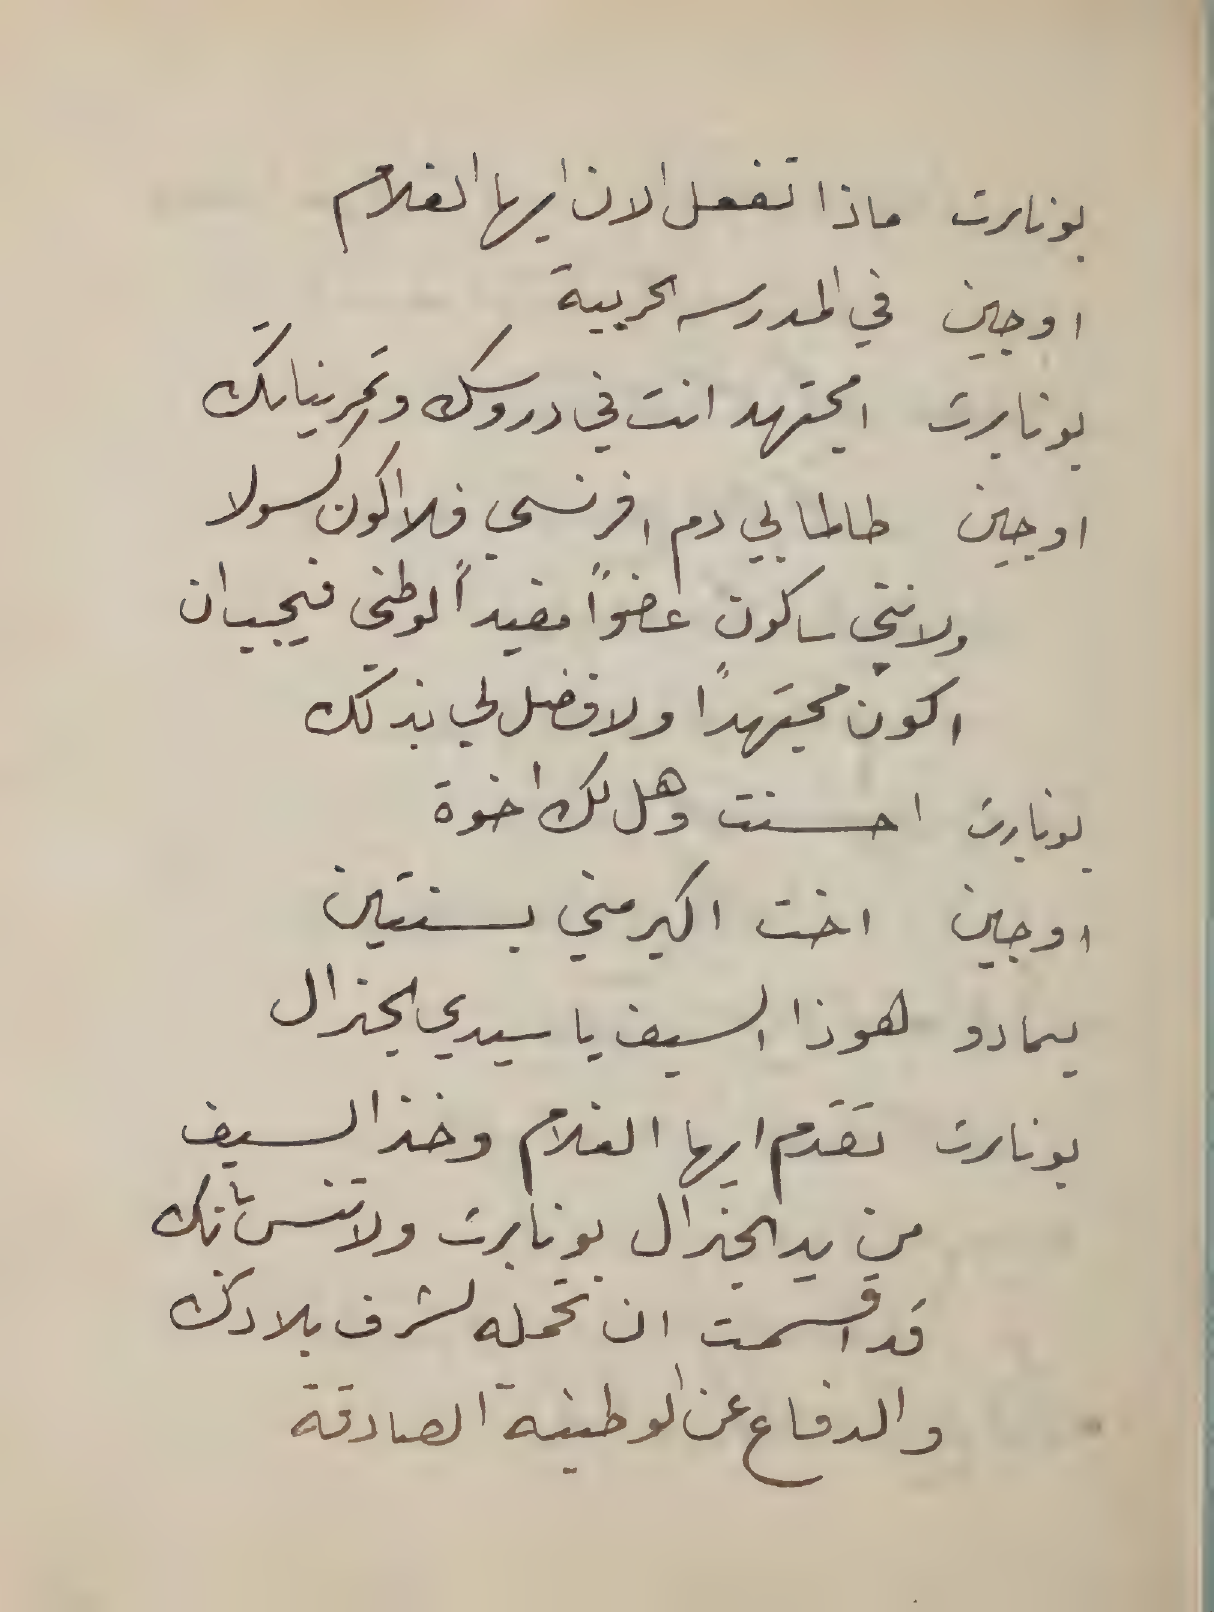 بونابرت ماذا تفعل الان ايها الغلام
اوجين في المدرسه الحربية
بونابرت امجتهد انت في دروسك وتمريناتك
اوجين طالما بي دم افرنسي فلا اكون كسولا
ولانني ساكون عضواً مفيداً لوطني فيجب ان
اكون مجتهداً ولا فضل لي بذلك
بونابرت احسنت وهل لك اخوة
اوجين اخت اكبر مني بسنتين
هوذا السيف يا سيدي الجنرال
بونابرت تقدم ايها الغلام وخذ السيف
من يد الجنرال بونابرت ولا تنس بانك
قد اقسمت ان تحمله لشرف بلادك
والدفاع عن الوطنية الصادقة